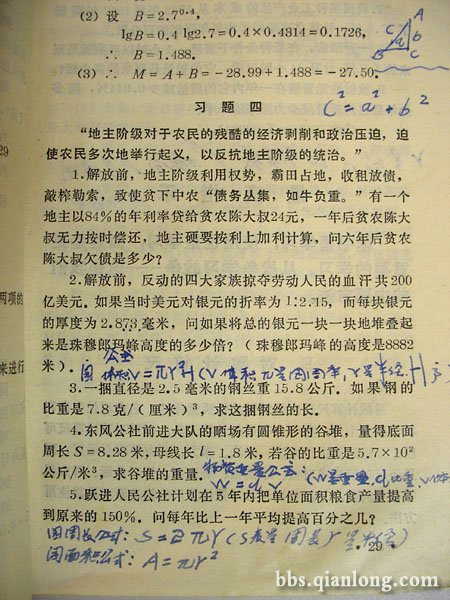 (2) 设 B=2.7⁰·⁴,
lgB=0.4 lg2.7=0.4×0.4314=0.1726,
∴ B=1.488.
(3) ∴ M=A+B=-28.99+1.488=-27.50.
A
C
b
B
C
29
习题四
C²=a²+b²
“地主阶级对于农民的残酷的经济剥削和政治压迫，迫
使农民多次地举行起义，以反抗地主阶级的统治。”
1.解放前，地主阶级利用权势，霸田占地，收租放债，
敲榨勒索，致使贫下中农“债务丛集，如牛负重。”有一个
地主以84%的年利率贷给贫农陈大叔24元，一年后贫农陈大
叔无力按时偿还，地主硬要按利上加利计算，问六年后贫农
陈大叔欠债是多少？
2.解放前，反动的四大家族掠夺劳动人民的血汗共200
亿美元。如果当时美元对银元的折率为1:2.15，而每块银元
的厚度为2.873毫米，问如果将总的银元一块一块地堆叠起
来是珠穆郎玛峰高度的多少倍？（珠穆郎玛峰的高度是8882
米）．
两项的
公式
圆 体积V=πr²H (V体积 π是圆周率, r是半径 H
来进行
3.一捆直径是2.5毫米的钢丝重15.8公斤．如果钢的
比重是7.8克/（厘米）³，求这捆钢丝的长．
4.东风公社前进大队的晒场有圆锥形的谷堆，量得底面
周长S=8.28米,母线长l=1.8米，若谷的比重是5.7×10²
公斤/米³，求谷堆的重量．
公式: (W是重量, d比重, V体
W=dV
5.跃进人民公社计划在5年内把单位面积粮食产量提高
到原来的150%．问每年比上一年平均提高百分之几？
圆周长公式: S=2πr (S表是圆長r是半径)
·29·
圆面积公式: A=πr²
bbs.qianlong.com